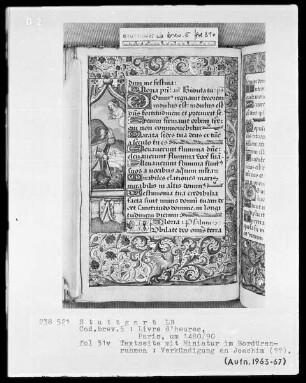 D 2
brev. 5 fol 31v
dum me festina:
Gloria
Dominus regnavit decorem
indutus est indutus est
dominus fortitudinem et precinxit se
Etenim firmavit orbem terre
qui non commovebitur
Parata sedes tua deus ex tunc
a seculo tu es
Elevaverunt flumina domine
elevaverunt flumina vocem suam
a vocibus aquarum
Mirabiles elationes maris
mirabilis in altis dominus
Testimonia tua credibilia
facta sunt nimis domum tuam
decet sanctitudo domine in longi
tudinem dierum
Gloria
Jubilate deo omnis terra
238 521 Stuttgart LB
Cod.brev.5 : Livre d'heures,
Paris, um 1480/90
fol 31v Textseite mit Miniatur im Bordüren-
rahmen : Verkündigung an Joachim (??).
(Aufn. 1963-67)